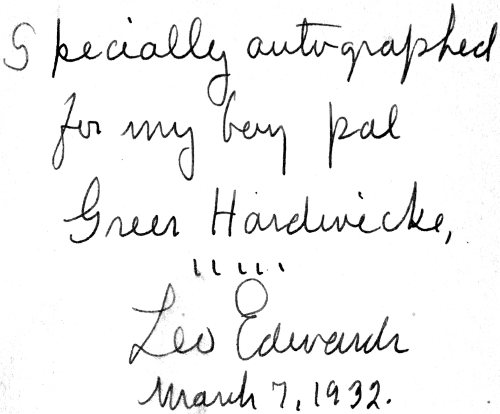 Specially autographed
for my boy pal
Green Hardwicke,
Leo Edwards
March 7, 1932.